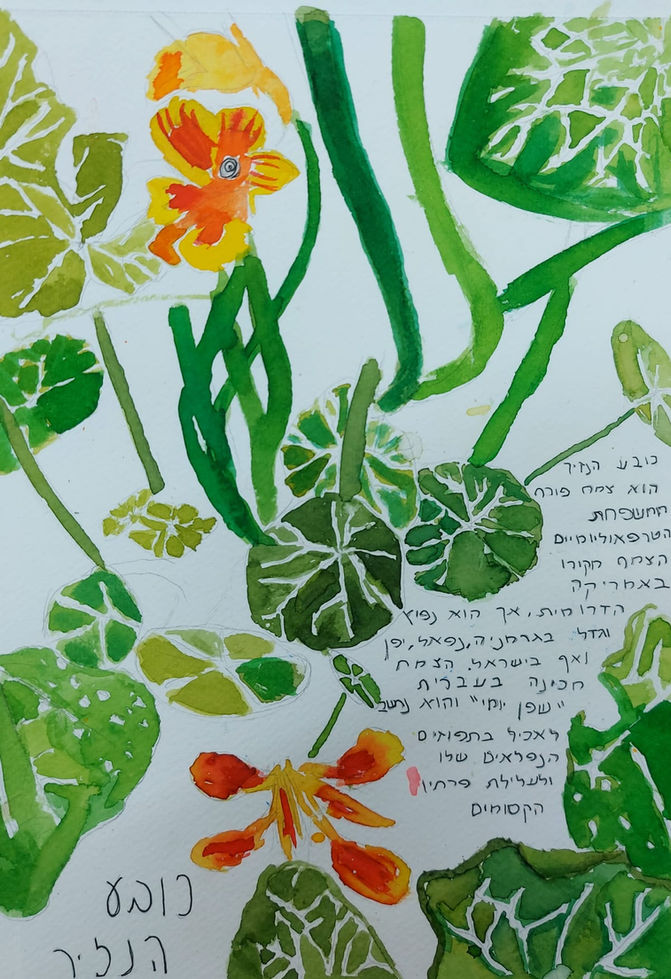 כובע הנזיר
הוא צמח פורח
ממשפחת
הטרפאוליומיים
הצמח מקורו
באמריקה
הדרומית, אך הוא נפוץ
וגדל בגרמניה, נפאל, יפן
ואף בישראל. הצמח
מכינה בעברית
"שפן יומי" והוא נחשב
לאכיל בתפוזים
הנפלאים שלו
ולעלילת פרחיו
הקסומים
כובע
הנזיר